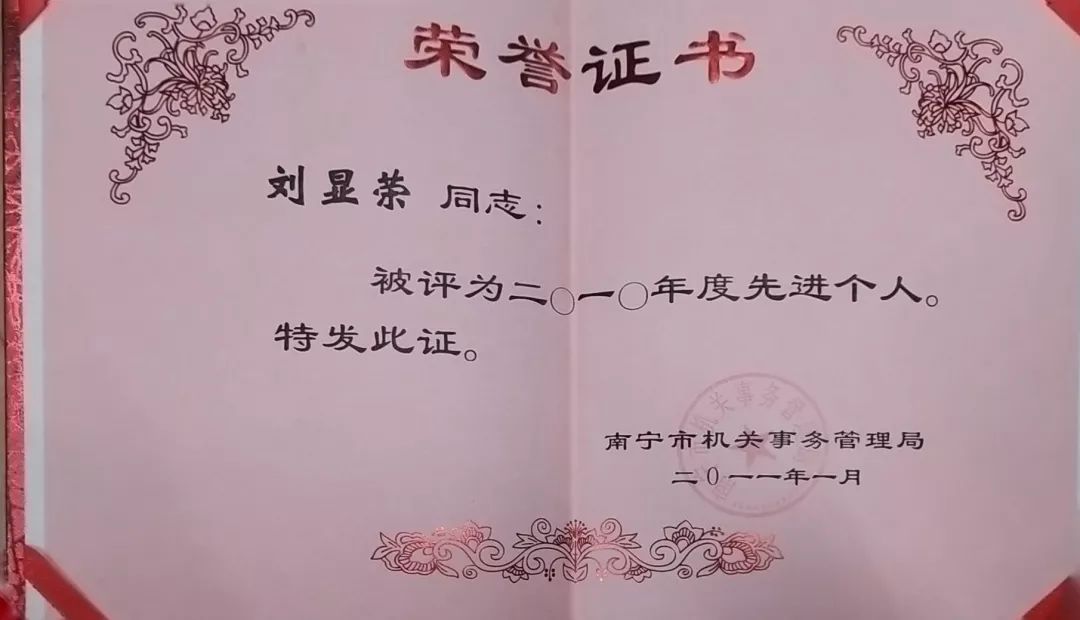 荣誉证书
刘显荣 同志：
被评为二〇一〇年度先进个人。
特发此证。
南宁市机关事务管理局
二〇一一年一月